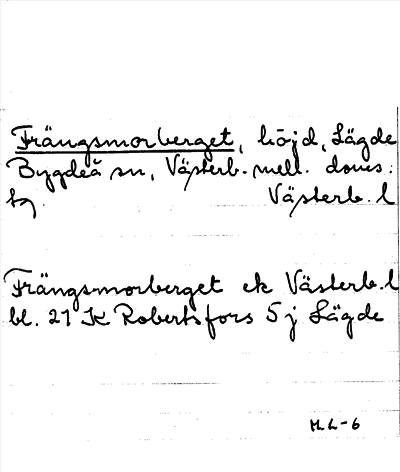 Frängsmorberget, höjd, Lägde
Bygdeå sn, Västerb. mell. doms.
tg. Västerb. l
Frängsmorberget ek Västerb. l
bl. 21 K Robertsfors 5 j Lägde
M.L-6